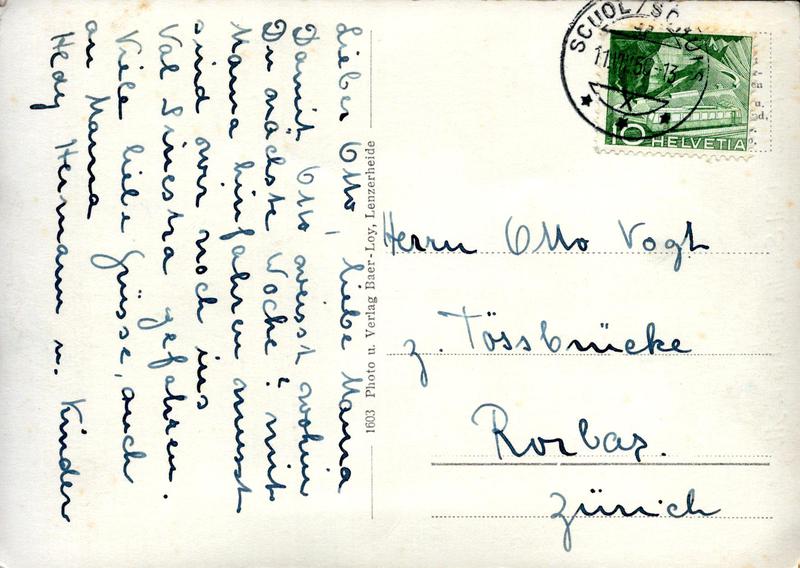 Lieber Otto, liebe Mama
Damit Otto weisst wohin
Du nächste Woche mit
Mama hinfahren musst
sind wir noch ins
Val Sinestra gefahren.
Viele liebe Grüsse, auch
an Mama
Hedy Hermann u. Kinder
1603 Photo u. Verlag Baer-Loy, Lenzerheide
SCUOL/SCHULS
10 HELVETIA
Herrn Otto Vogt
z. Tössbrücke
Rorbas.
Zürich